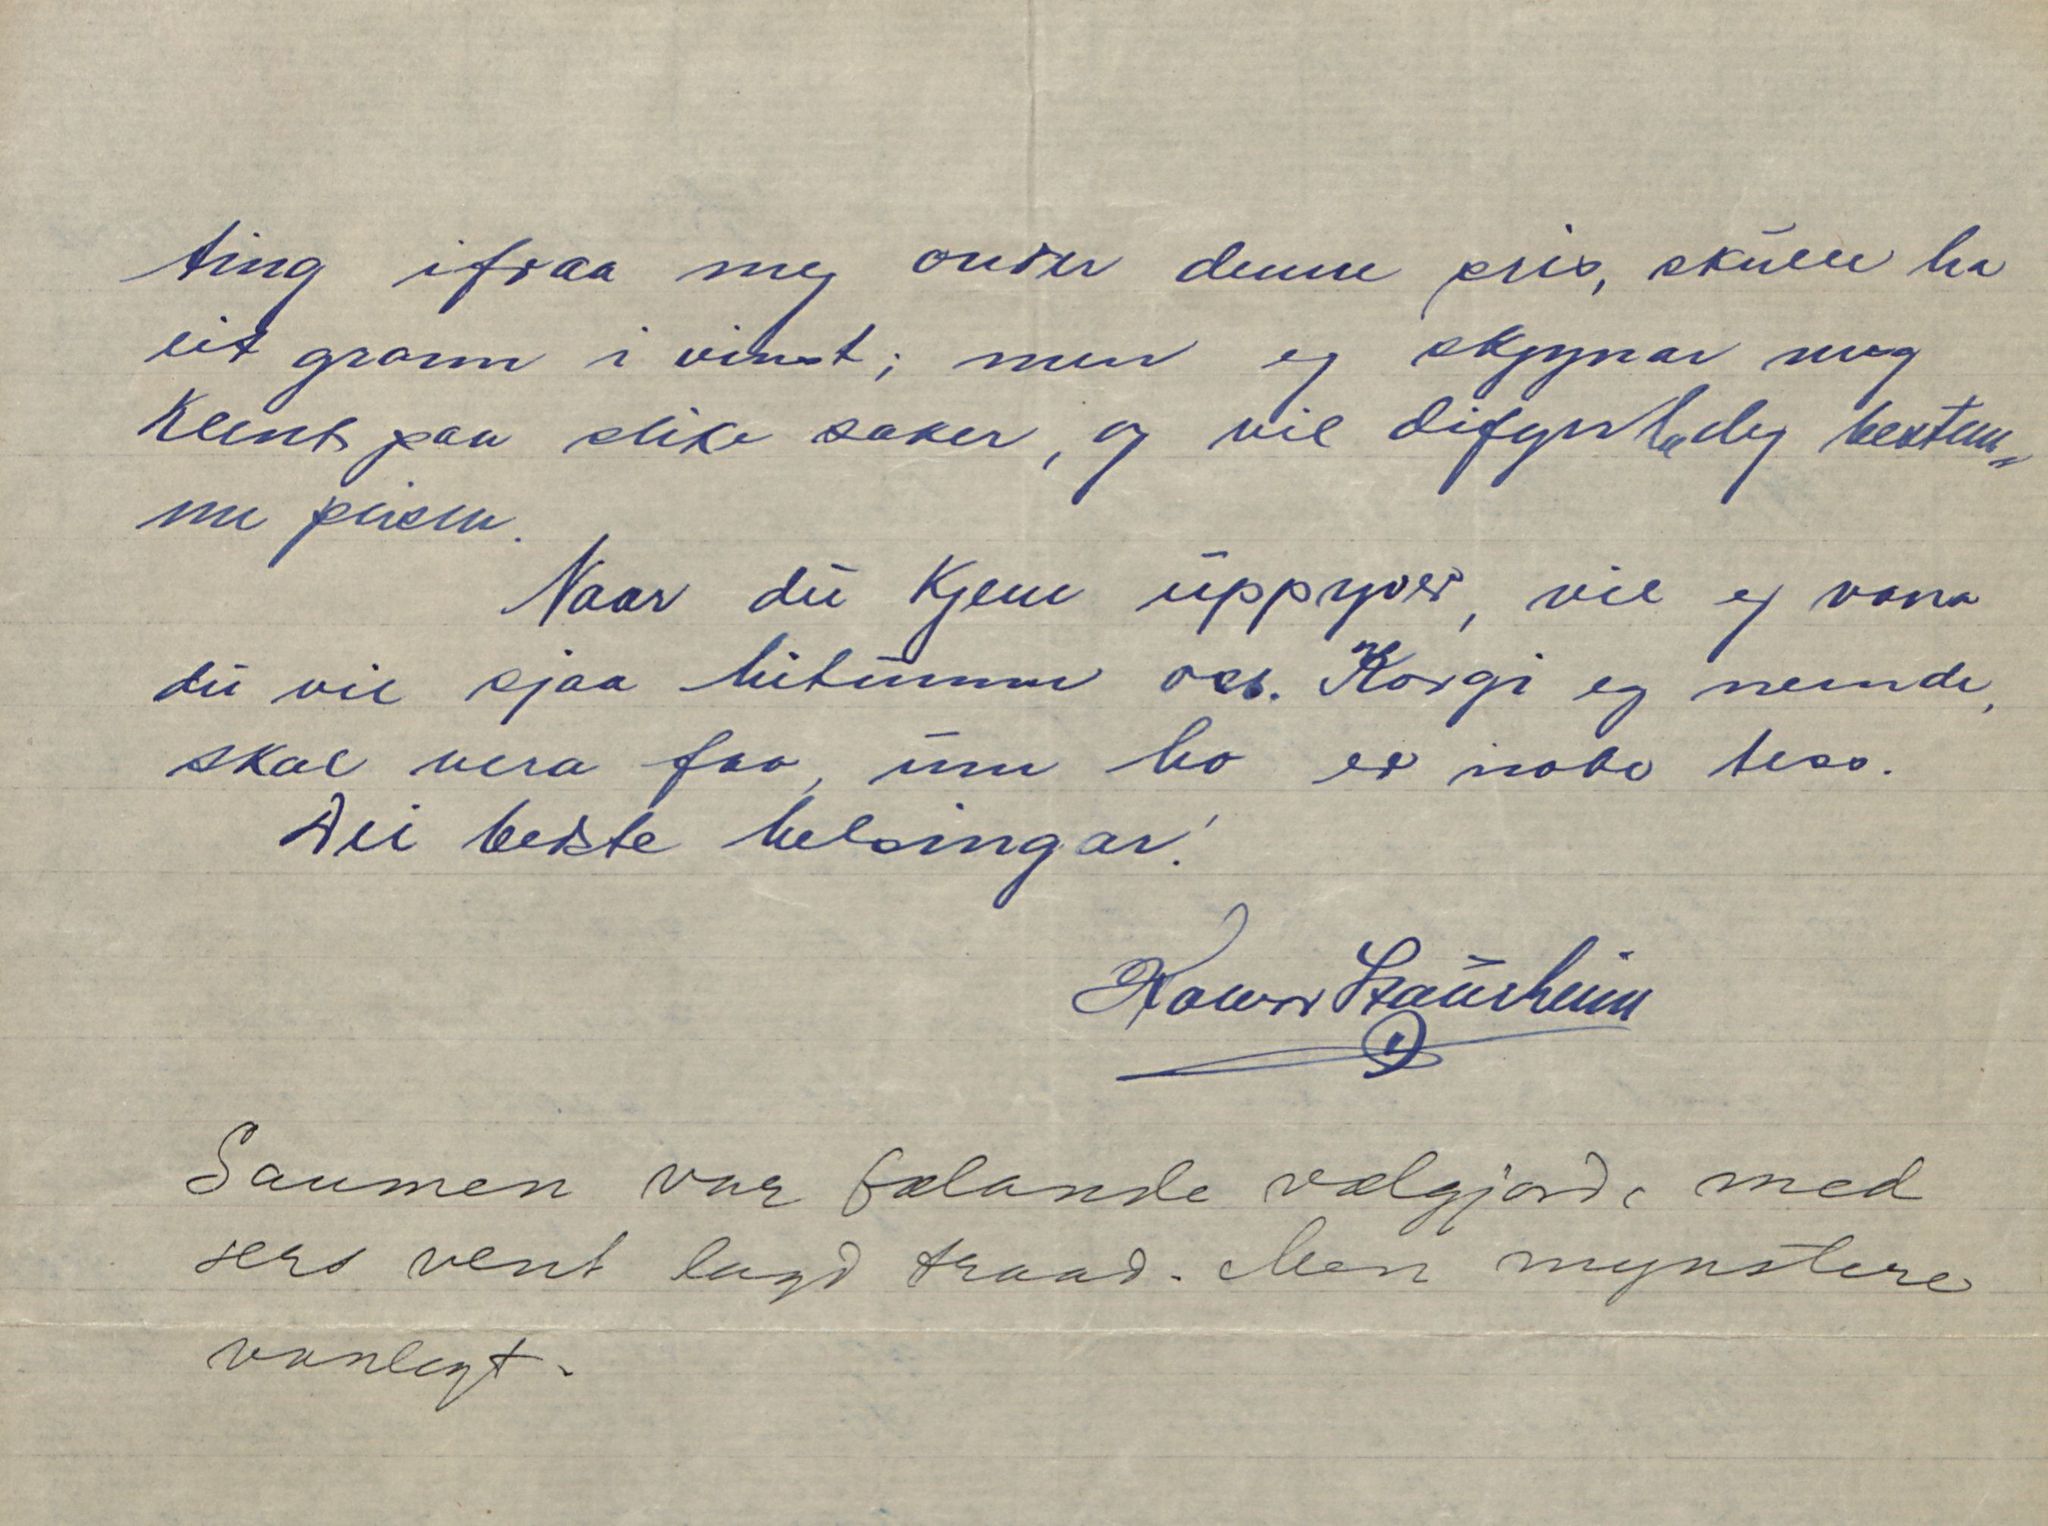 ting ifraa meg onder denne pris, skulle ha
eit grann i vinst; men eg skjynar meg
kleint paa slike saker, og vil difyr la deg bestem-
me prisen.
Naar du kjem uppyver, vil eg vona
du vil sjaa hitumm oss. Korgi eg nemde,
skal vera faa, um ho er noko tess.
Dei beste helsingar!
Staurheim
Saumen var fælande vælgjord, med
sers vent lagd traad. Men mynstere
vanlegt.